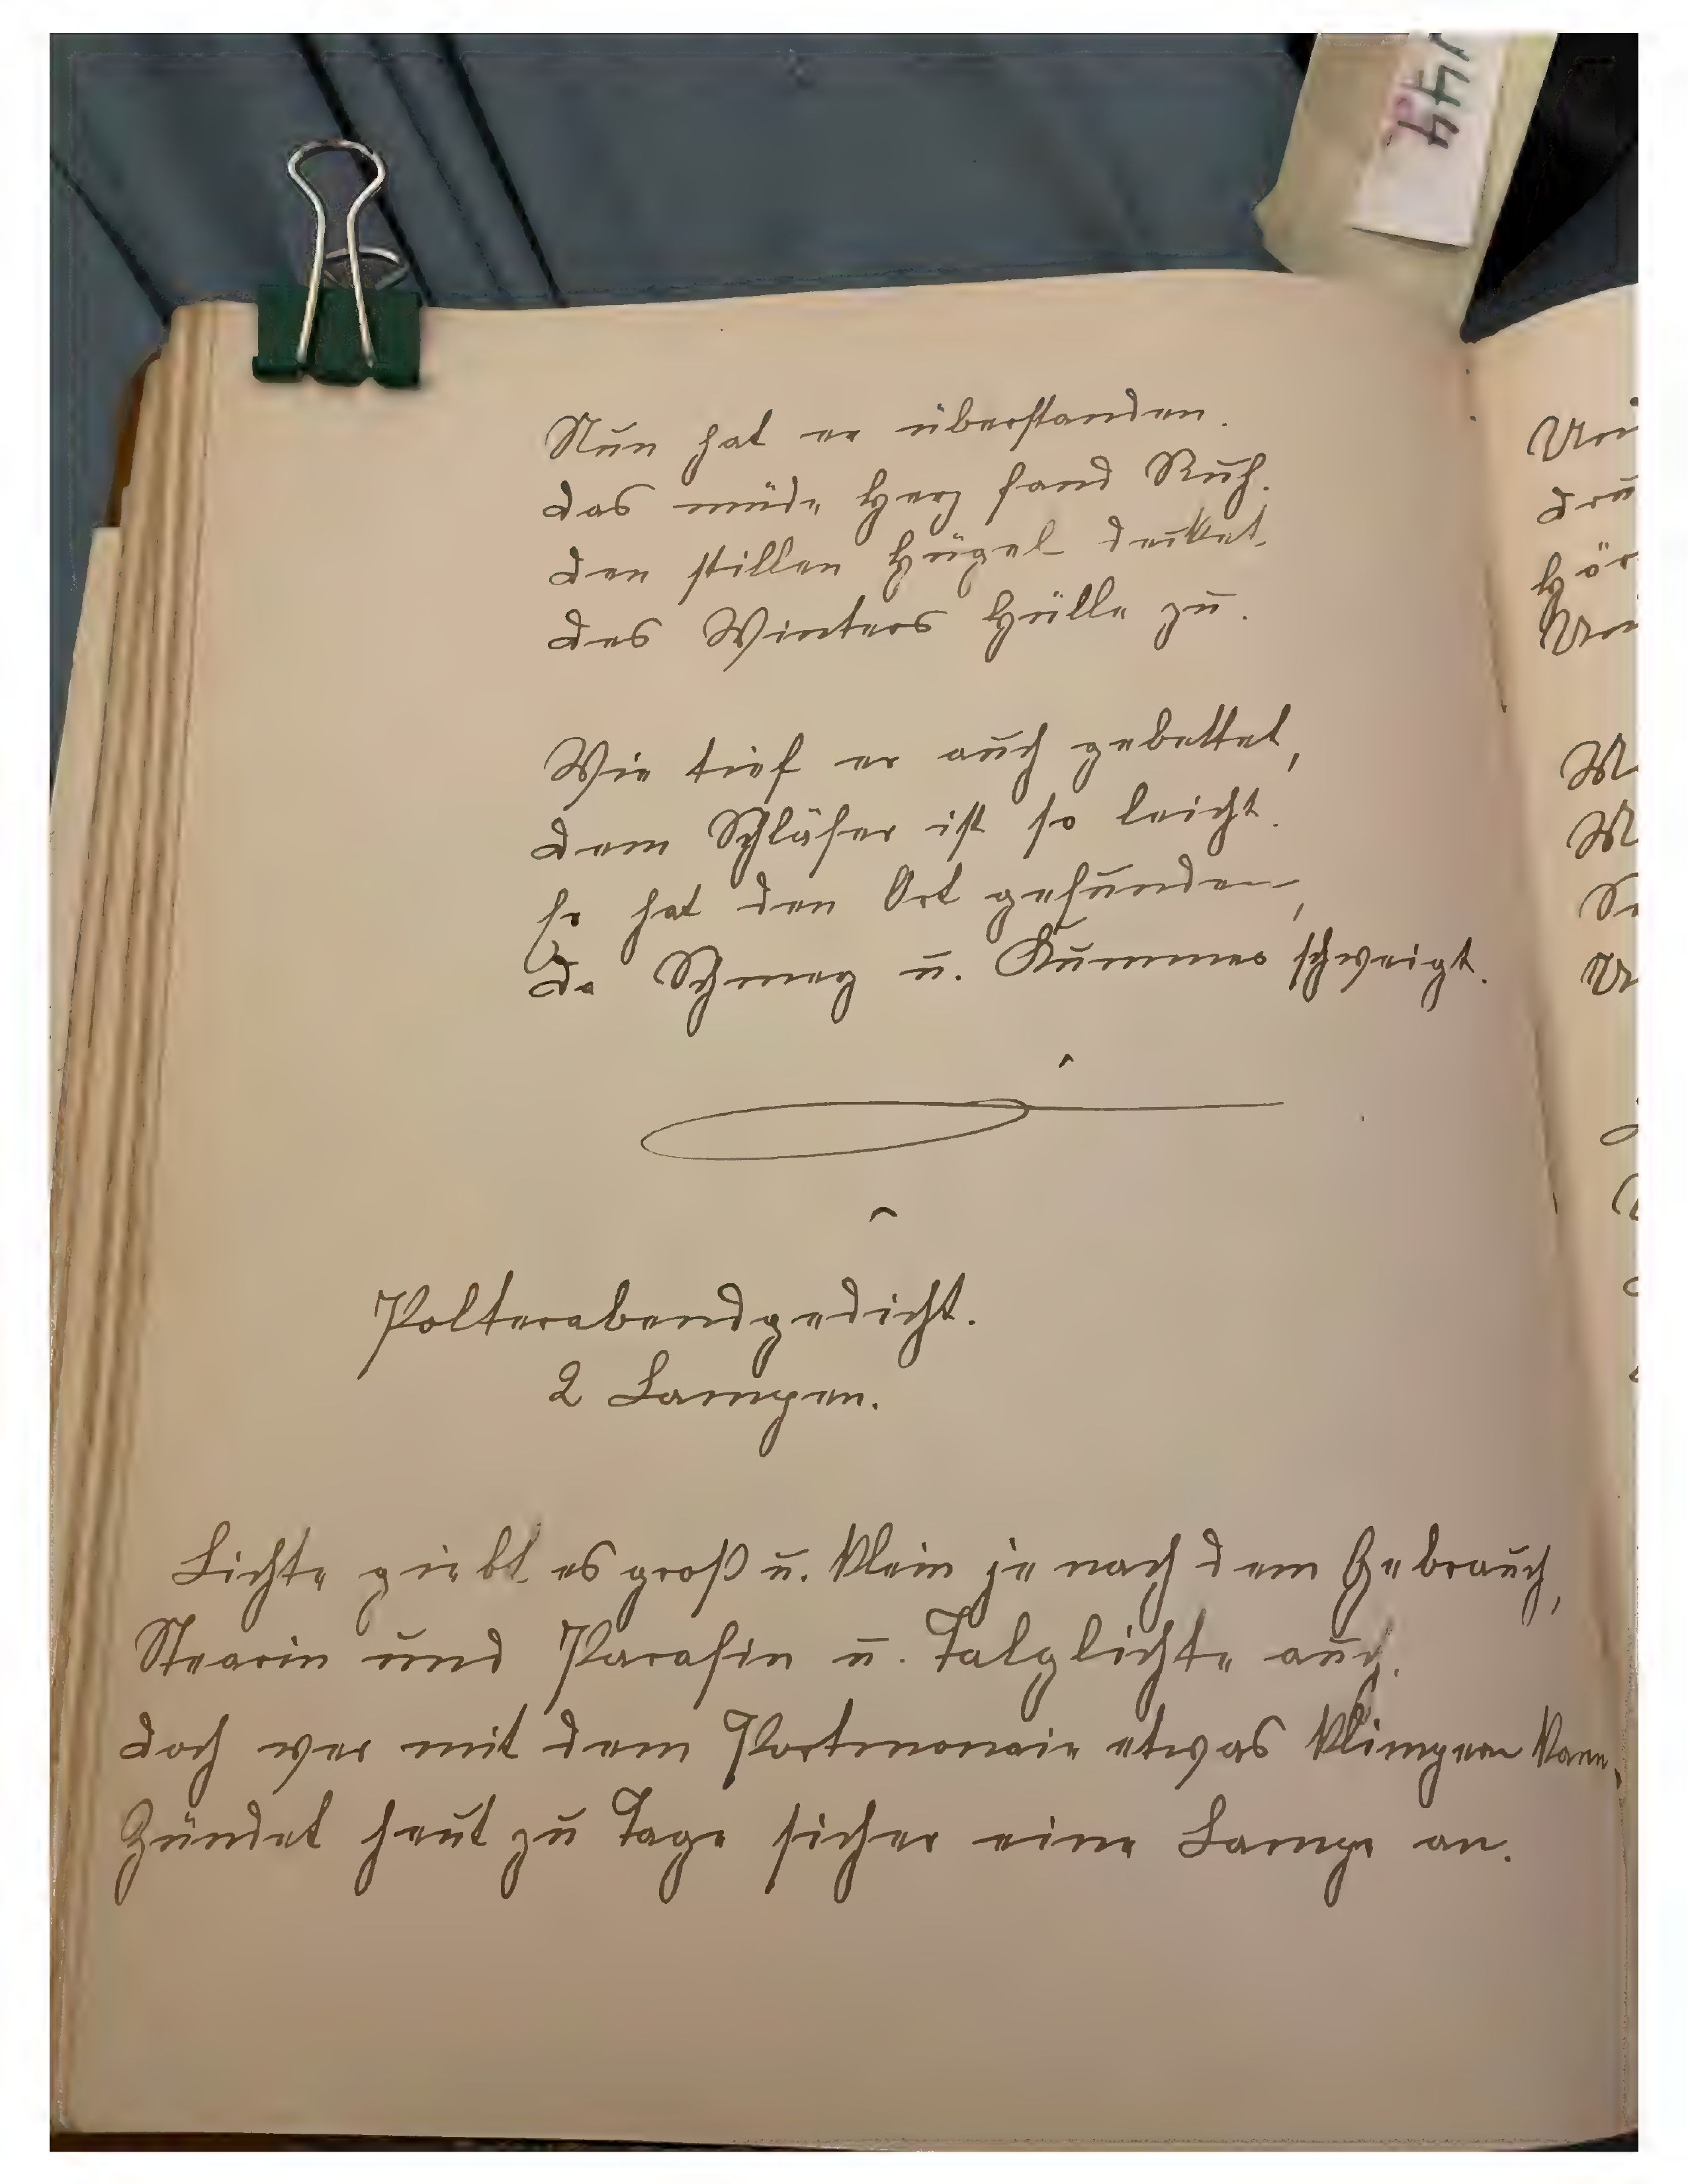 Nun hat er überstanden.
das müde Herz fand Ruh.
den stillen Hügel decket
des Winters Hülle zu.
Wie tief er auch gebettet,
dem Schläfer ist so leicht.
Er hat den Ort gefunden,
da Schmerz u. Kummer schweigt.
Polterabendgedicht.
2 Lampen.
Lichte giebt es groß u. klein je nach dem Gebrauch,
Stearin und Parafin u. Talglichte auch.
doch wer mit dem Portmonaie etwas klimpern kann,
Zündet heut zu Tage sicher eine Lampe an.